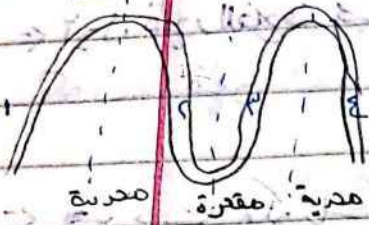 ١ ٢ ٣ ٤
محدبة مقعرة محدبة